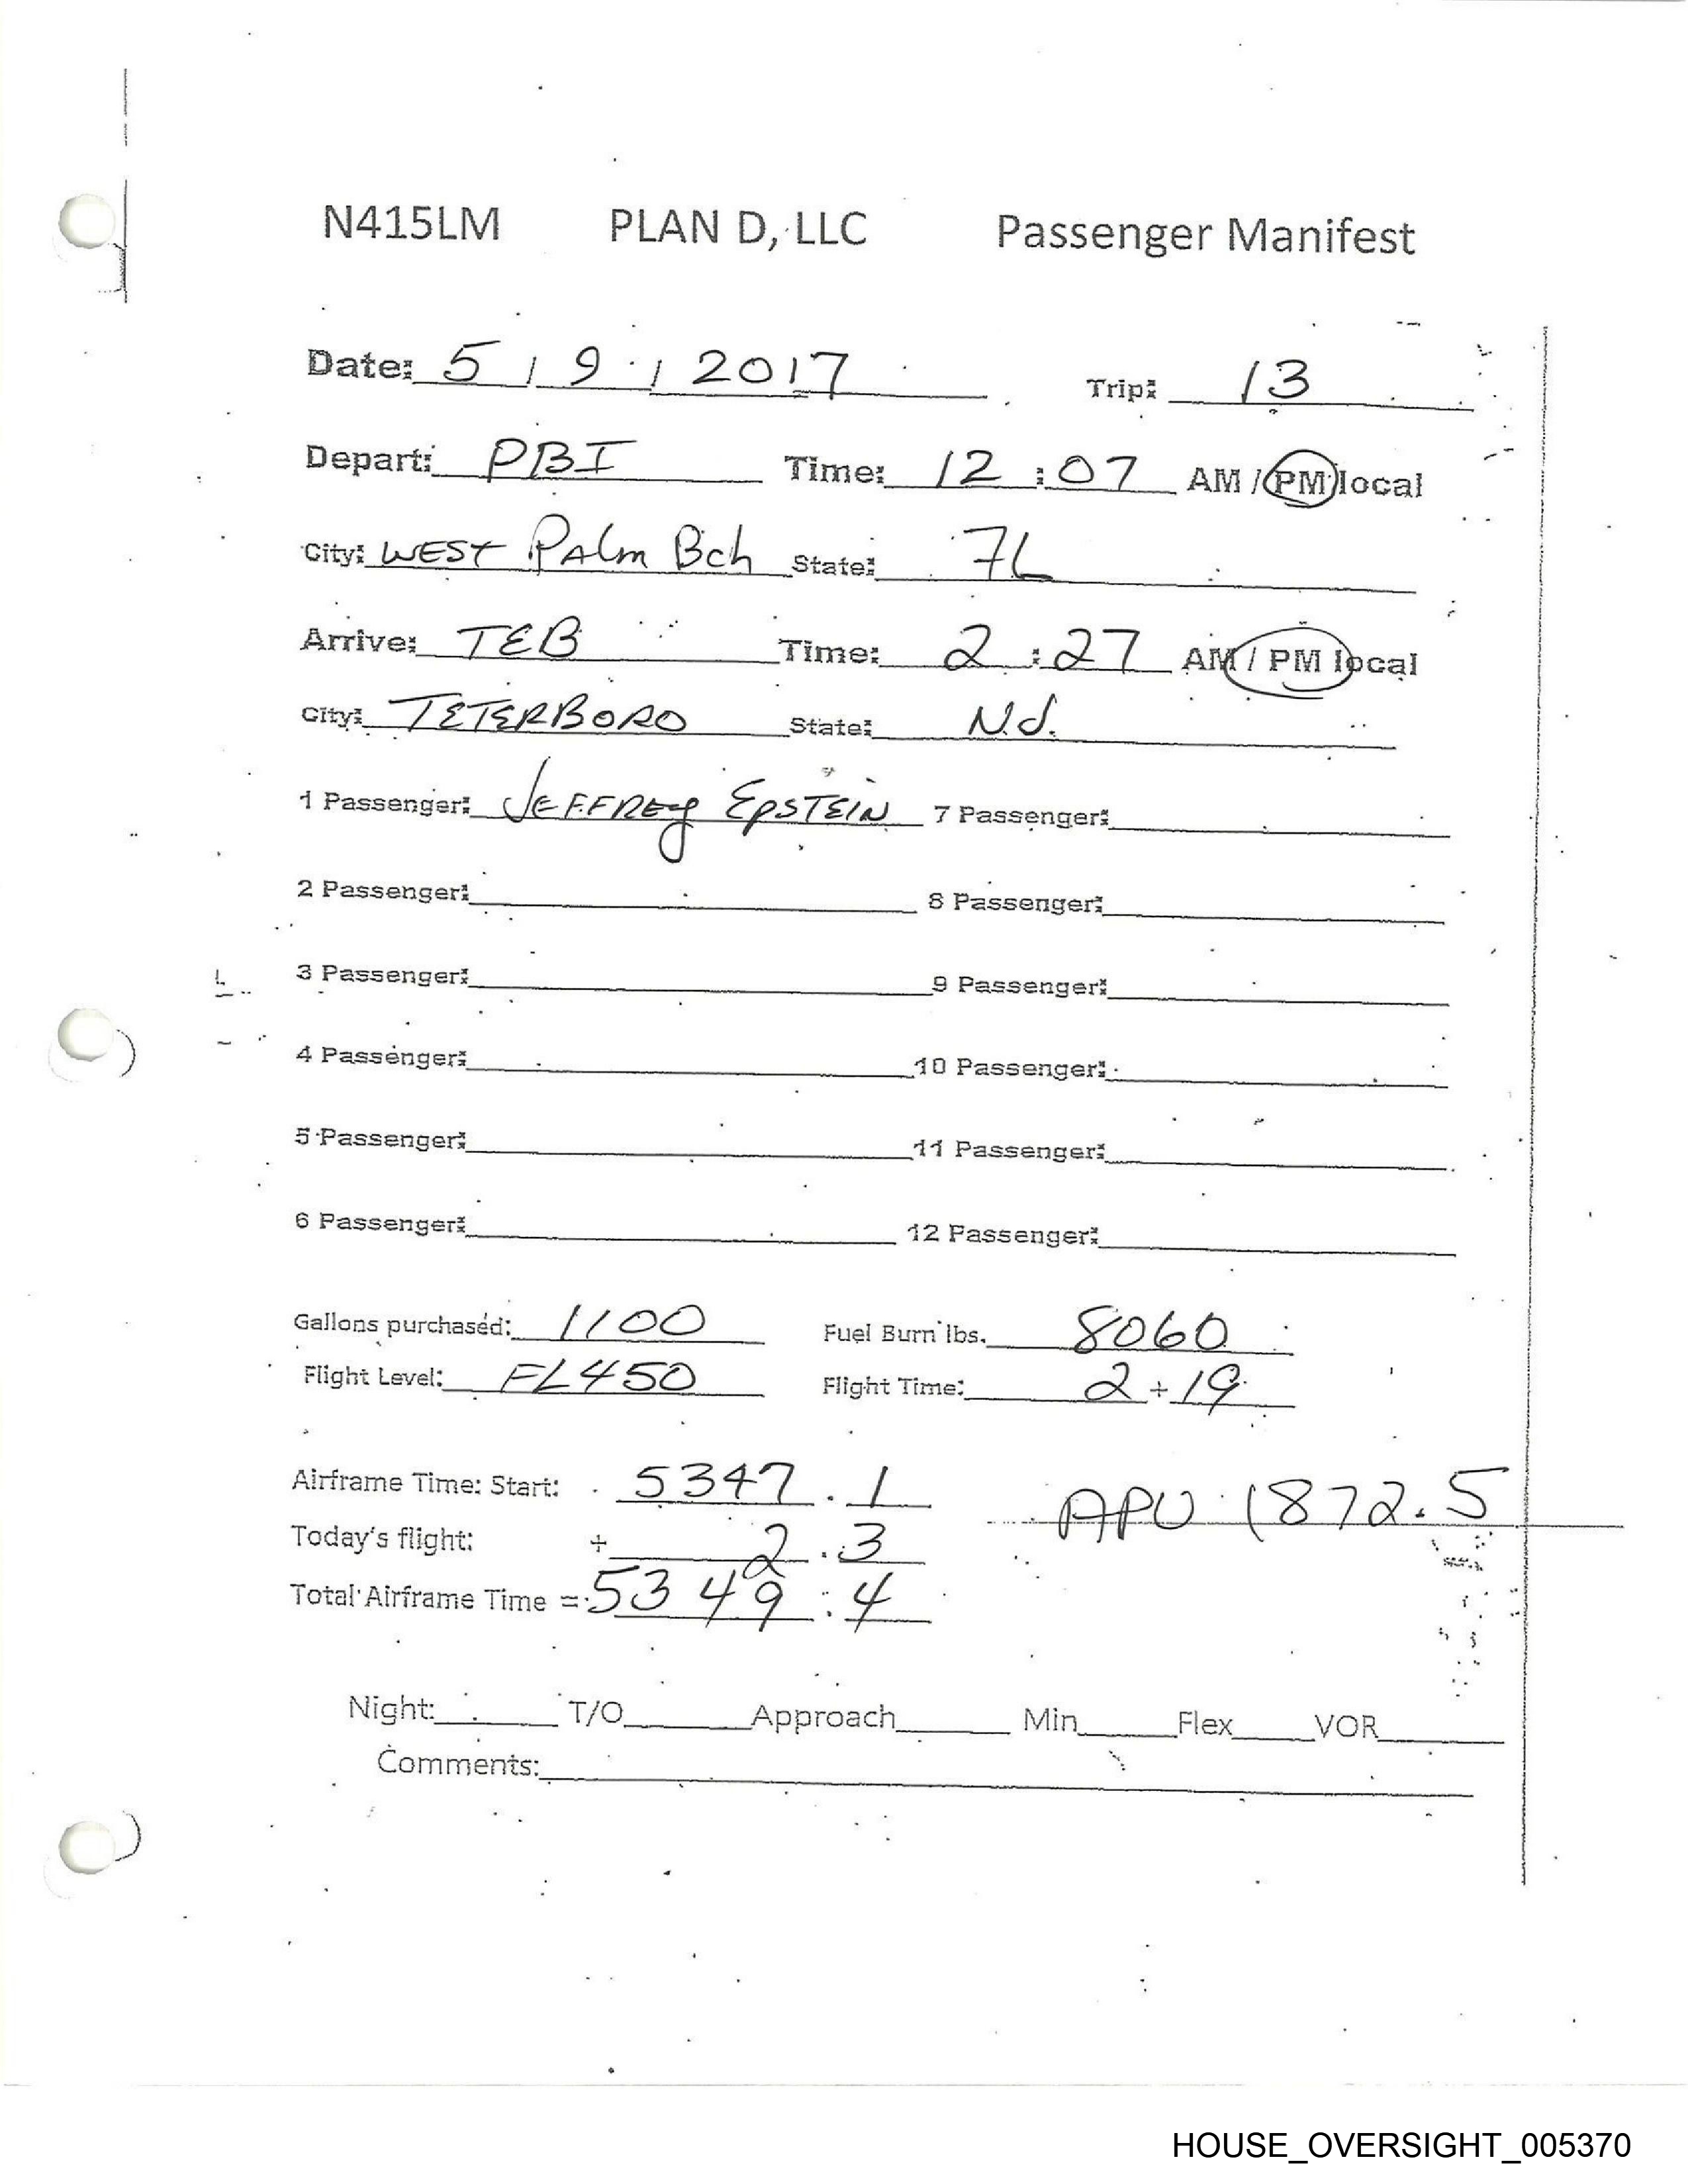 N415LM PLAN D, LLC Passenger Manifest
Date: 5 / 9 / 2017 Trip: 13
Depart: PBI Time: 12 : 07 AM / PM local
City: WEST PAlm Bch State: FL
Arrive: TEB Time: 2 : 27 AM / PM local
City: TETERBORO State: N.J.
1 Passenger: JEFFREy EpSTEIN 7 Passenger:
2 Passenger: 8 Passenger:
3 Passenger: 9 Passenger:
4 Passenger: 10 Passenger:
5 Passenger: 11 Passenger:
6 Passenger: 12 Passenger:
Gallons purchased: 1100 Fuel Burn lbs. 8060
Flight Level: FL450 Flight Time: 2 + 19
Airframe Time: Start: 5347 . 1 APU 1872.5
Today's flight: + 2 . 3
Total Airframe Time = 5349 : 4
Night: T/O Approach Min Flex VOR
Comments:
HOUSE_OVERSIGHT_005370